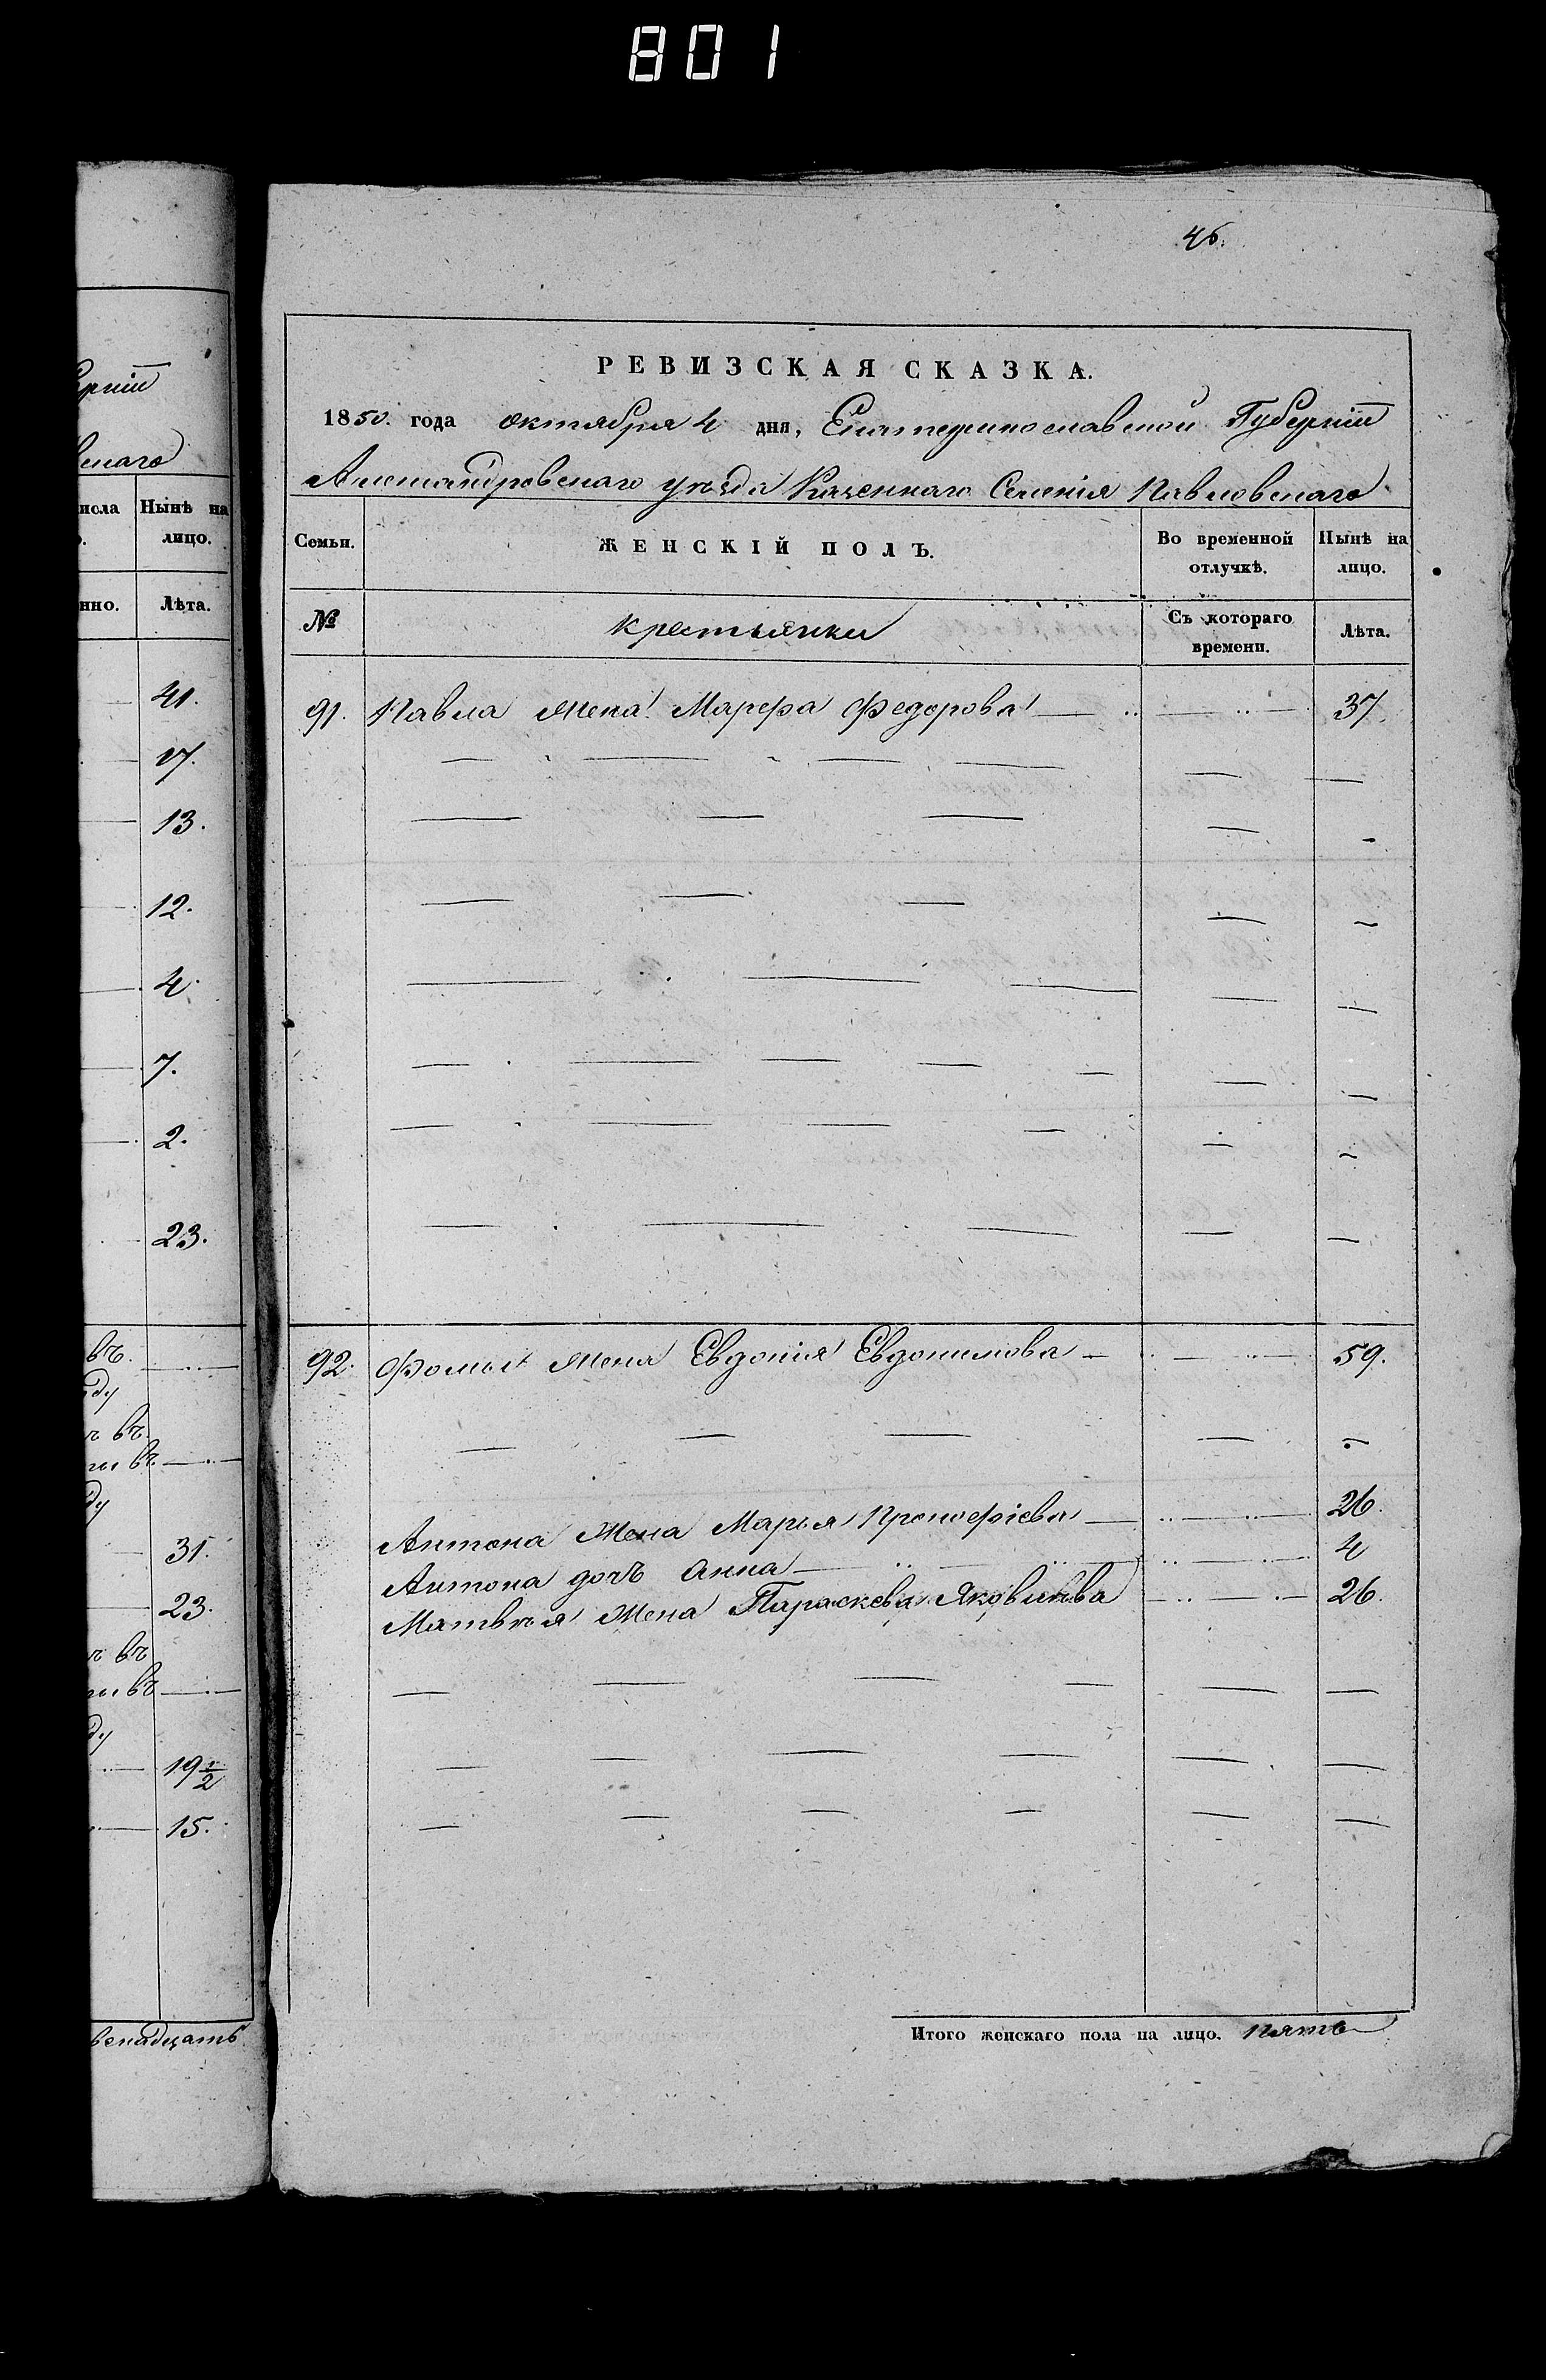 801
46.
РЕВИЗСКАЯ СКАЗКА.
1850. года октября 4 дня, Екатеринославской Губерніи
Александровскаго уѣзда Казеннаго Селенія Павловскаго
Семьи. ЖЕНСКІЙ ПОЛЪ. Во временной отлучкѣ. Нынѣ на лицо.
№ крестьянки Съ котораго времени. Лѣта.
91. Павла жена Марфа Федорова 37.
92. Фомы жена Евдокія Евдокимова 59.
Антона жена Марья Прокофіева 26.
Антона дочь Анна 4
Матвѣя жена Параскева Яковлева 26.
Итого женскаго пола на лицо. пять
ерніи
скаго
исла Нынѣ на
лицо.
нно. Лѣта.
41.
17.
13.
12.
4.
7.
2.
23.
въ.
ду
ъ въ
ны въ
ду
31.
23.
ъ въ
ны въ
ду
19 1/2
15.
венадцать